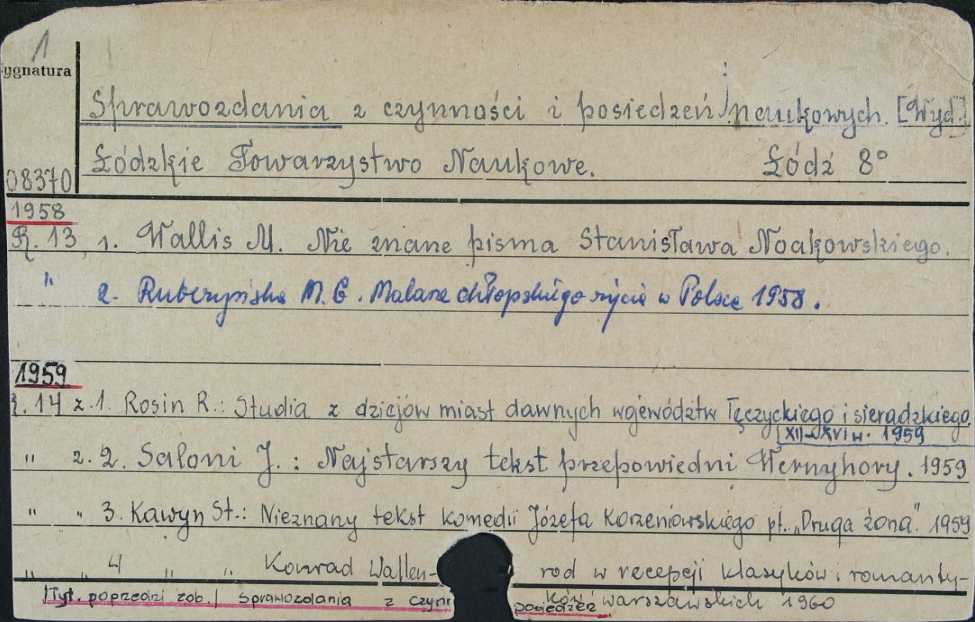 1
ygnatura
Sprawozdania z czynności i posiedzeń naukowych. [Wyd.]
Łódzkie Towarzystwo Naukowe. Łódź 8°
08370
1958
R. 13, 1. Wallis M. Nie znane pisma Stanisława Noakowskiego.
" 2. M. G. w Polsce 1958.
1959
R. 14 z. 1. Rosin R.: Studia z dziejów miast dawnych województw łęczyckiego i sieradzkiego.
XII-XVI w. 1959
" z. 2. Saloni J.: Najstarszy tekst przepowiedni Wernyhory. 1959
" " 3. Kawyn St.: Nieznany tekst komedii Józefa Korzeniowskiego pt. „Druga żona". 1959
" " 4 " " Konrad Wallen- rod w recepcji klasyków i romanty-
ków warszawskich 1960
/Tyt. poprzedni zob./ Sprawozdania z czyn posiedzeń